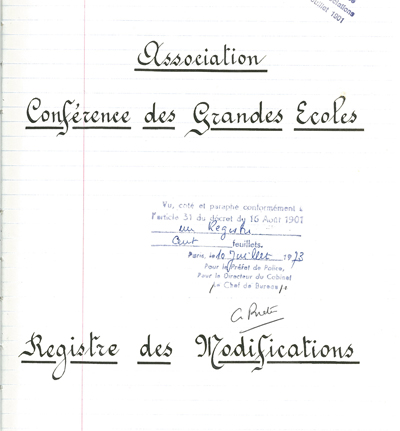 1901
Association
Conférence des Grandes Ecoles
Vu, coté et paraphé conformément à
l'article 31 du décret du 16 Août 1901
un Registre
Cent feuillets.
Paris, le 10 Juillet 1973
Pour le Préfet de Police,
Pour le Directeur du Cabinet
Le Chef de Bureau
Registre des Modifications